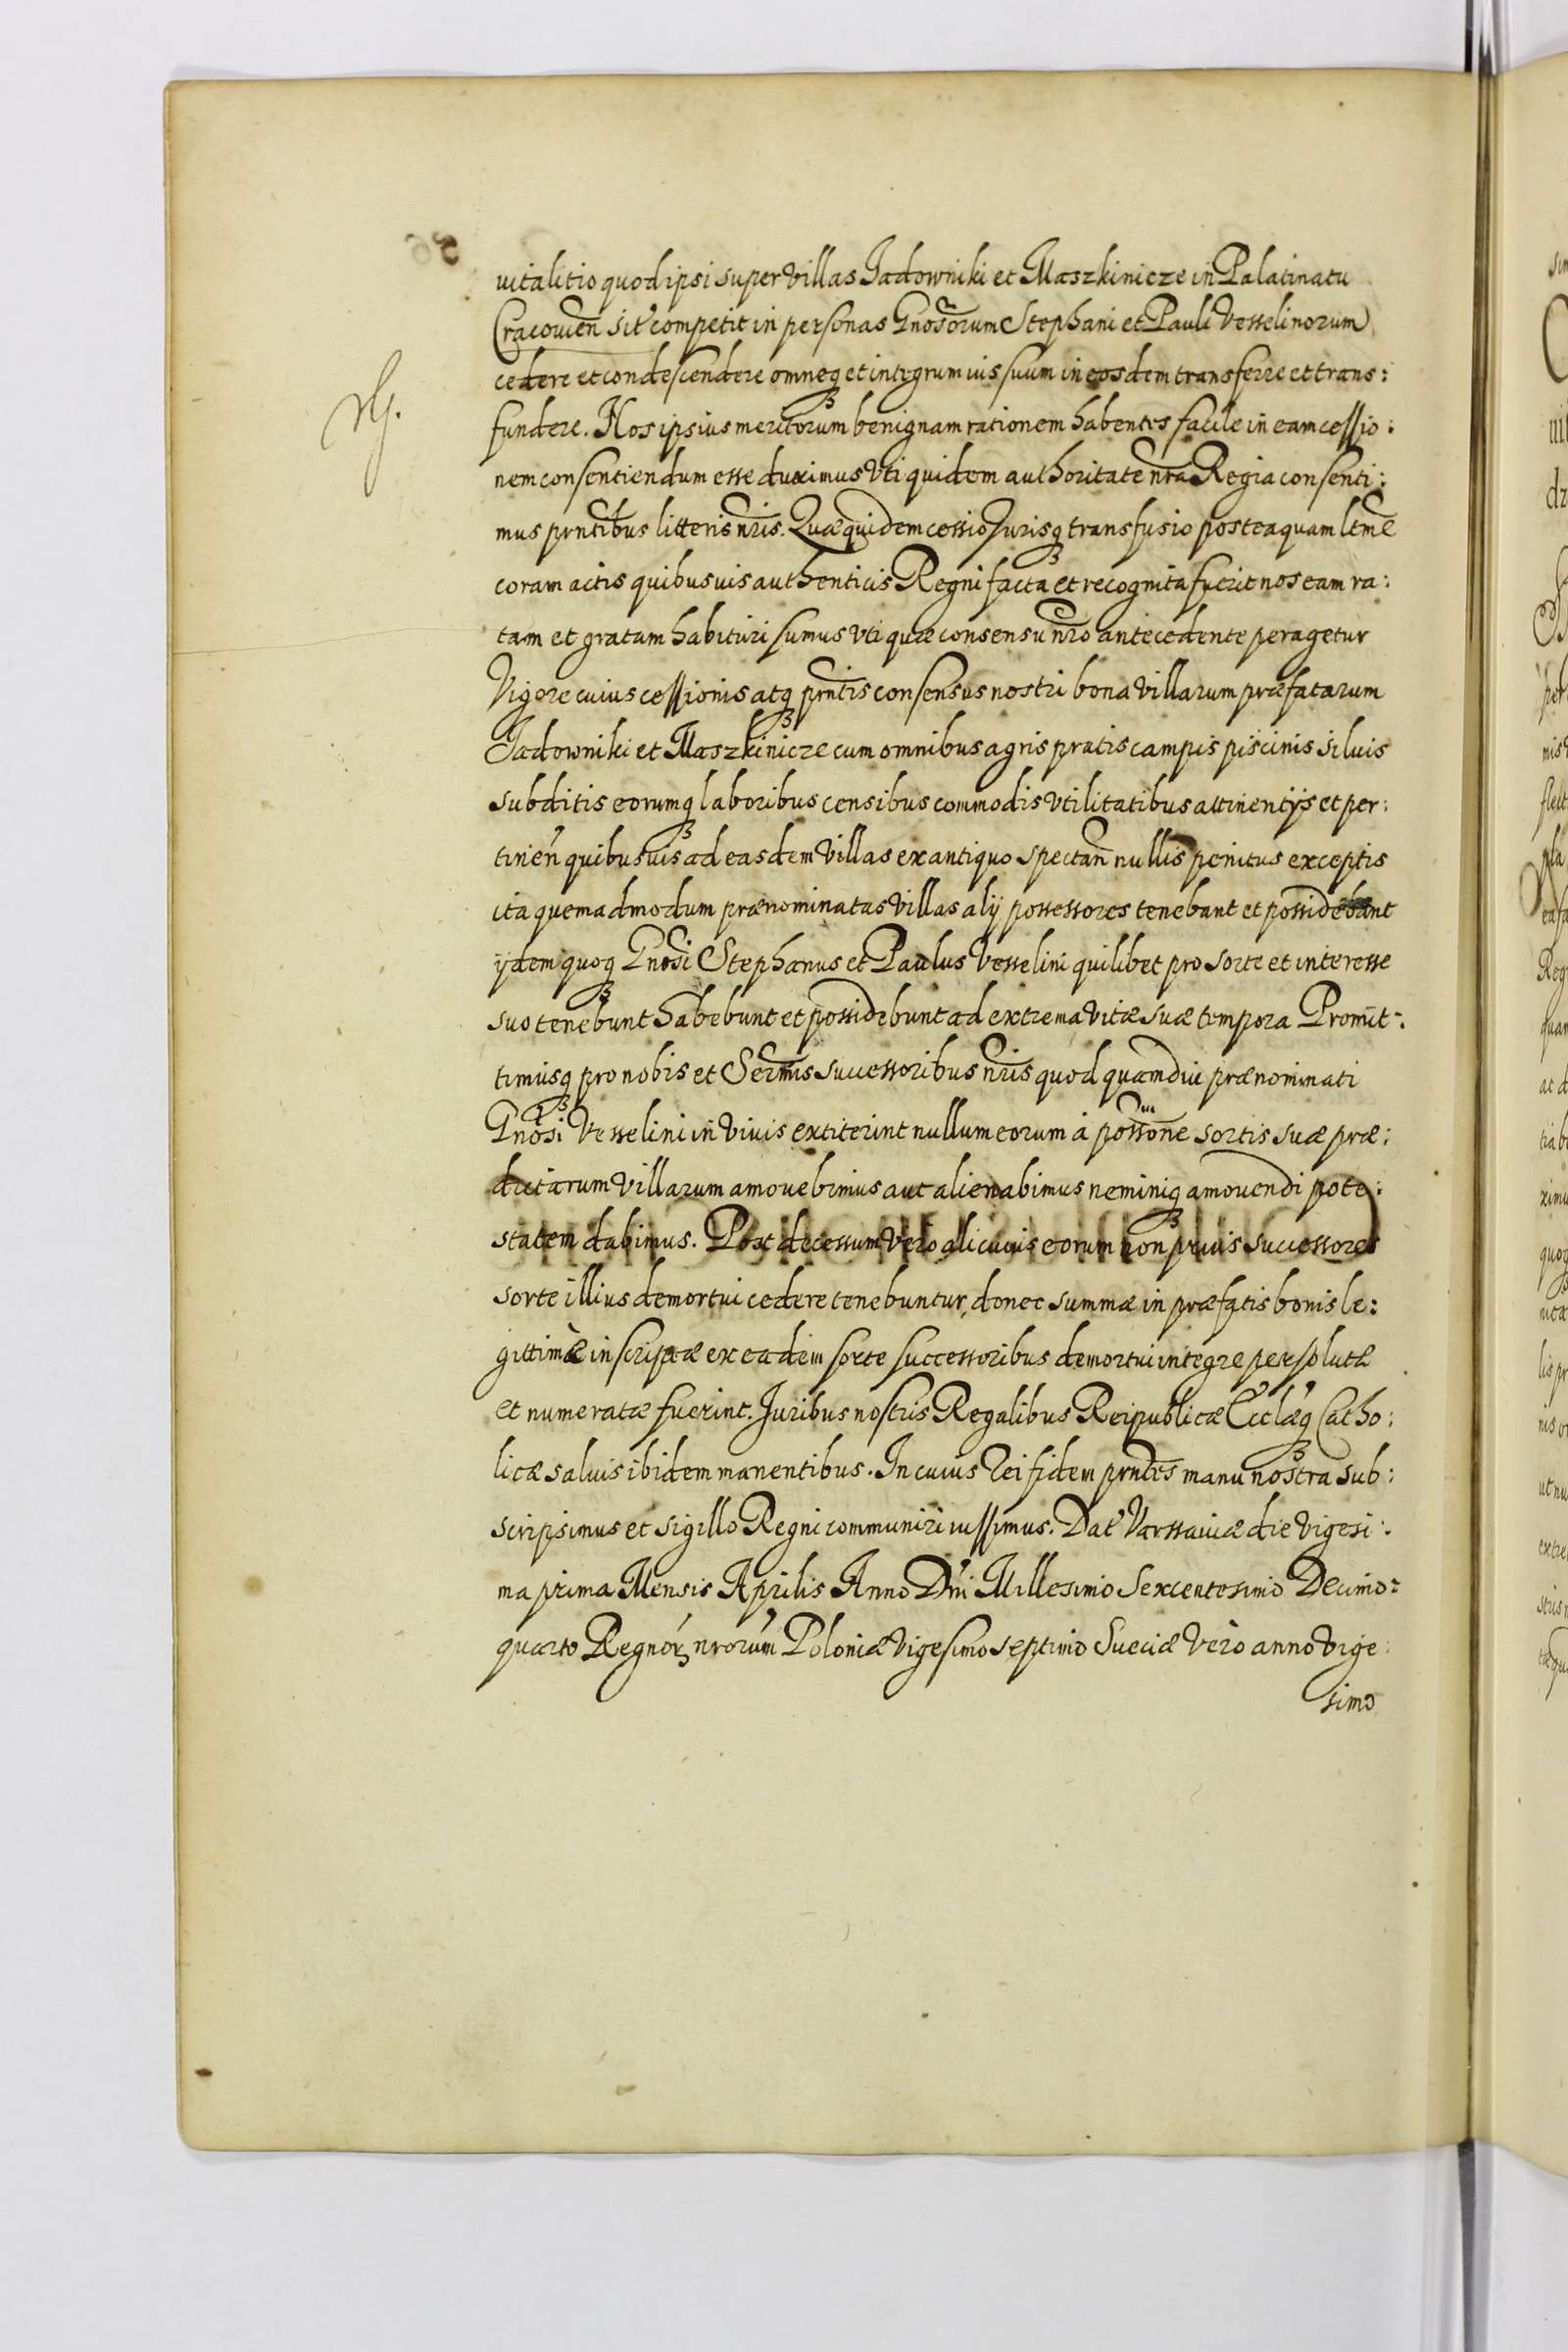 vitalitio quod ipsi super Villas Jadowniki et Maszkinicze in Palatinatu
Cracouien̄ sit' competit in personas Gnosorum Stephani et Pauli Vesselinorum
cedere et condescendere omneq3 et integrum ius suum in eosdem transferre et trans:
fundere. Nos ipsius meritorum benignam rationem habentes facile in eam cessio:
nem consentiendum esse duximus Vti quidem authoritate nr̄a Regia consenti:
mus prn̄tibus litteris nr̄is. Quæ quidem cessio Jurisq3 transfusio posteaquam ltm̄e
coram actis quibusuis authenticis Regni facta et recognita fuerit nos eam ra:
tam et gratam habituri sumus vti quæ consensu nr̄o antecedente peragetur
Vigore cuius cessionis atq3 prn̄tis consensus nostri bona villarum præfatarum
Jadowniki et Maszkinicze cum omnibus agris pratis campis piscinis siluis
subditis eorumq3 laboribus censibus commodis vtilitatibus attinentijs et per:
tinen̄ quibusuis ad easdem Villas ex antiquo spectan̄ nullis penitus exceptis
ita quemadmodum prænominatas Villas alij possessores tenebant et possidebant
ijdem quoq3 Gnosi Stephanus et Paulus Vesselini quilibet pro sorte et interesse
suo tenebunt habebunt et possidebunt ad extrema vitæ suæ tempora Promit:
timusq3 pro nobis et Serm̄is successoribus nr̄is quod quamdiu prænominati
Gnosi Vesselini in Viuis extiterint nullum eorum à possōne sortis suæ præ:
dictarum Villarum amouebimus aut alienabimus neminiq3 amouendi pote:
statem dabimus. Post decessum Vero alicuius eorum non prius successores
sorte illius demortui cedere tenebuntur, donec summæ in præfatis bonis le:
gittimæ inscriptæ ex eadem sorte successoribus demortui integre persolutæ
et numeratæ fuerint. Juribus nostris Regalibus Reipublicæ Eccl'æq3 Catho:
licæ saluis ibidem manentibus. In cuius rei fidem prn̄tes manu nostra sub:
scripsimus et sigillo Regni communiri iussimus. Dat' Varssauiæ die Vigesi:
ma prima Mensis Aprilis Anno Dn̄i Millesimo Sexcentesimo Decimo:
quarto Regnoꝝ nrorum Poloniæ Vigesimo septimo Sueciæ Vero anno vige:
simo